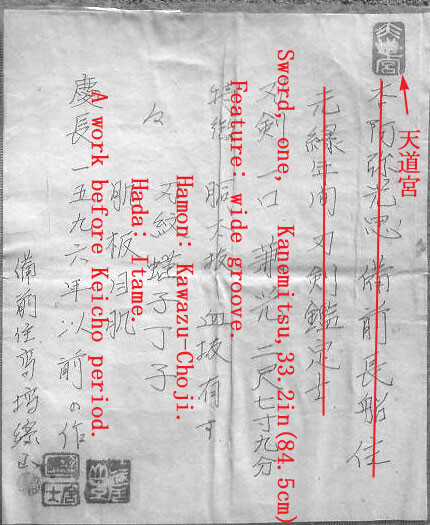 天道宮
天道宮
本阿弥光忠 備前長船住
元緑年間刃剣鑑定士
刃剣一口 兼光 二尺七寸九分
Sword, one, Kanemitsu, 33.2in(84.5cm)
血抜有す
Feature: wide groove.
刃紋 丁子
Hamon: Kawazu-Choji.
肌板目肌
Hada: Itame.
慶長一五九六年以前の作
A work before Keicho period.
備前住